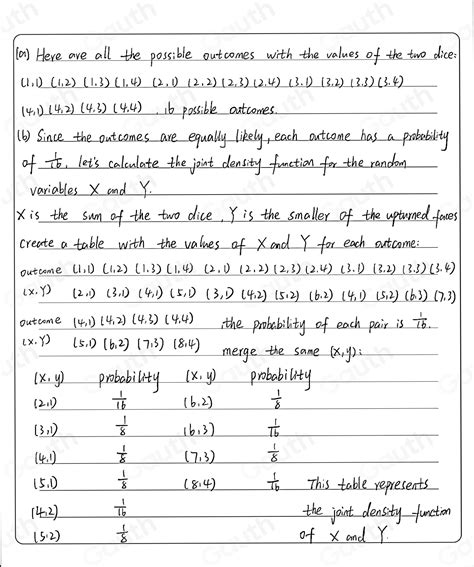 (a) Here are all the possible outcomes with the values of the two dice:
(1,1) (1,2) (1,3) (1,4) (2,1) (2,2) (2,3) (2,4) (3,1) (3,2) (3,3) (3,4)
(4,1) (4,2) (4,3) (4,4) . 16 possible outcomes.
(b) Since the outcomes are equally likely, each outcome has a probability
of 1/16, let's calculate the joint density function for the random
variables X and Y.
X is the sum of the two dice, Y is the smaller of the upturned faces
Create a table with the values of X and Y for each outcome:
outcome (1,1) (1,2) (1,3) (1,4) (2,1) (2,2) (2,3) (2,4) (3,1) (3,2) (3,3) (3,4)
(X,Y) (2,1) (3,1) (4,1) (5,1) (3,1) (4,2) (5,2) (6,2) (4,1) (5,2) (6,3) (7,3)
outcome (4,1) (4,2) (4,3) (4,4) , the probability of each pair is 1/16.
(X,Y) (5,1) (6,2) (7,3) (8,4) merge the same (x,y):
(x,y) probability (x,y) probability
(2,1) 1/16 (6,2) 1/8
(3,1) 1/8 (6,3) 1/16
(4,1) 1/8 (7,3) 1/8
(5,1) 1/8 (8,4) 1/16 This table represents
(4,2) 1/16 the joint density function
(5,2) 1/8 of X and Y.
Gauth